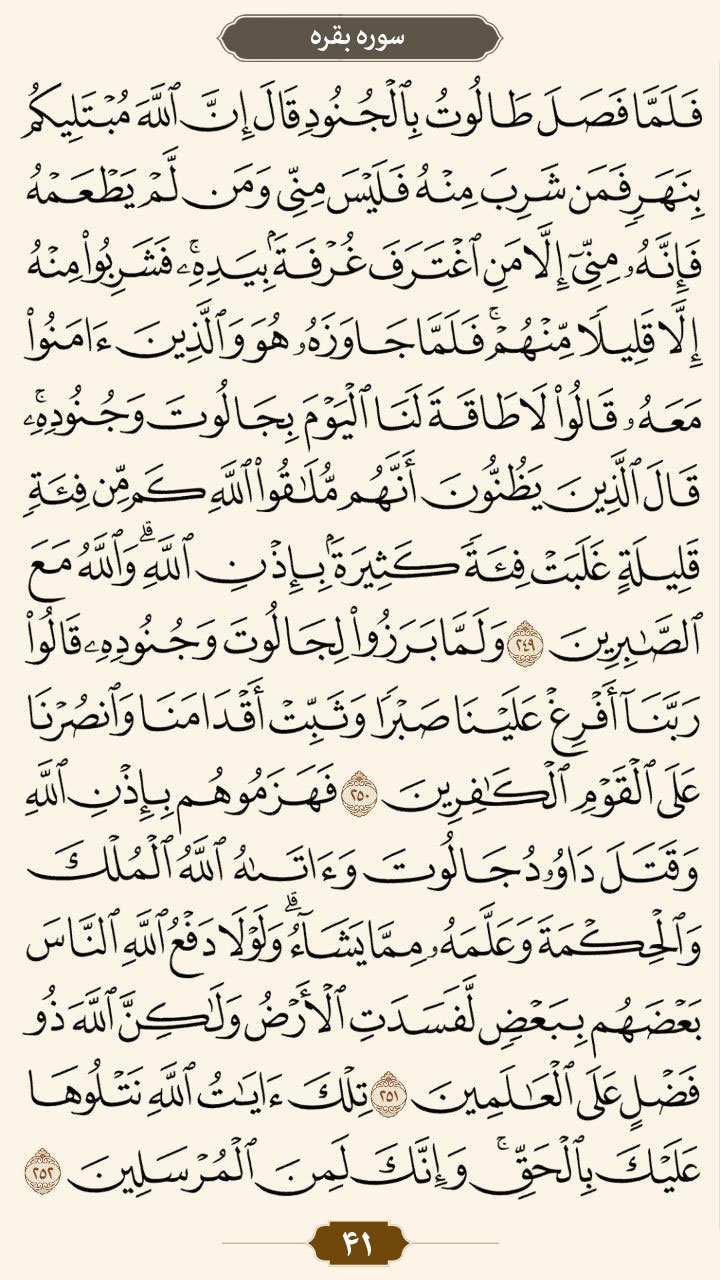 سوره بقره
فَلَمَّا فَصَلَ طَالُوتُ بِٱلۡجُنُودِ قَالَ إِنَّ ٱللَّهَ مُبۡتَلِيكُم
بِنَهَرٖ فَمَن شَرِبَ مِنۡهُ فَلَيۡسَ مِنِّي وَمَن لَّمۡ يَطۡعَمۡهُ
فَإِنَّهُۥ مِنِّيٓ إِلَّا مَنِ ٱغۡتَرَفَ غُرۡفَةَۢ بِيَدِهِۦۚ فَشَرِبُواْ مِنۡهُ
إِلَّا قَلِيلٗا مِّنۡهُمۡۚ فَلَمَّا جَاوَزَهُۥ هُوَ وَٱلَّذِينَ ءَامَنُواْ
مَعَهُۥ قَالُواْ لَا طَاقَةَ لَنَا ٱلۡيَوۡمَ بِجَالُوتَ وَجُنُودِهِۦۚ
قَالَ ٱلَّذِينَ يَظُنُّونَ أَنَّهُم مُّلَٰقُواْ ٱللَّهِ كَم مِّن فِئَةٖ
قَلِيلَةٍ غَلَبَتۡ فِئَةٗ كَثِيرَةَۢ بِإِذۡنِ ٱللَّهِۗ وَٱللَّهُ مَعَ
ٱلصَّٰبِرِينَ ٢٤٩ وَلَمَّا بَرَزُواْ لِجَالُوتَ وَجُنُودِهِۦ قَالُواْ
رَبَّنَآ أَفۡرِغۡ عَلَيۡنَا صَبۡرٗا وَثَبِّتۡ أَقۡدَامَنَا وَٱنصُرۡنَا
عَلَى ٱلۡقَوۡمِ ٱلۡكَٰفِرِينَ ٢٥٠ فَهَزَمُوهُم بِإِذۡنِ ٱللَّهِ
وَقَتَلَ دَاوُۥدُ جَالُوتَ وَءَاتَىٰهُ ٱللَّهُ ٱلۡمُلۡكَ
وَٱلۡحِكۡمَةَ وَعَلَّمَهُۥ مِمَّا يَشَآءُۗ وَلَوۡلَا دَفۡعُ ٱللَّهِ ٱلنَّاسَ
بَعۡضَهُم بِبَعۡضٖ لَّفَسَدَتِ ٱلۡأَرۡضُ وَلَٰكِنَّ ٱللَّهَ ذُو
فَضۡلٍ عَلَى ٱلۡعَٰلَمِينَ ٢٥١ تِلۡكَ ءَايَٰتُ ٱللَّهِ نَتۡلُوهَا
عَلَيۡكَ بِٱلۡحَقِّۚ وَإِنَّكَ لَمِنَ ٱلۡمُرۡسَلِينَ ٢٥٢
۴۱